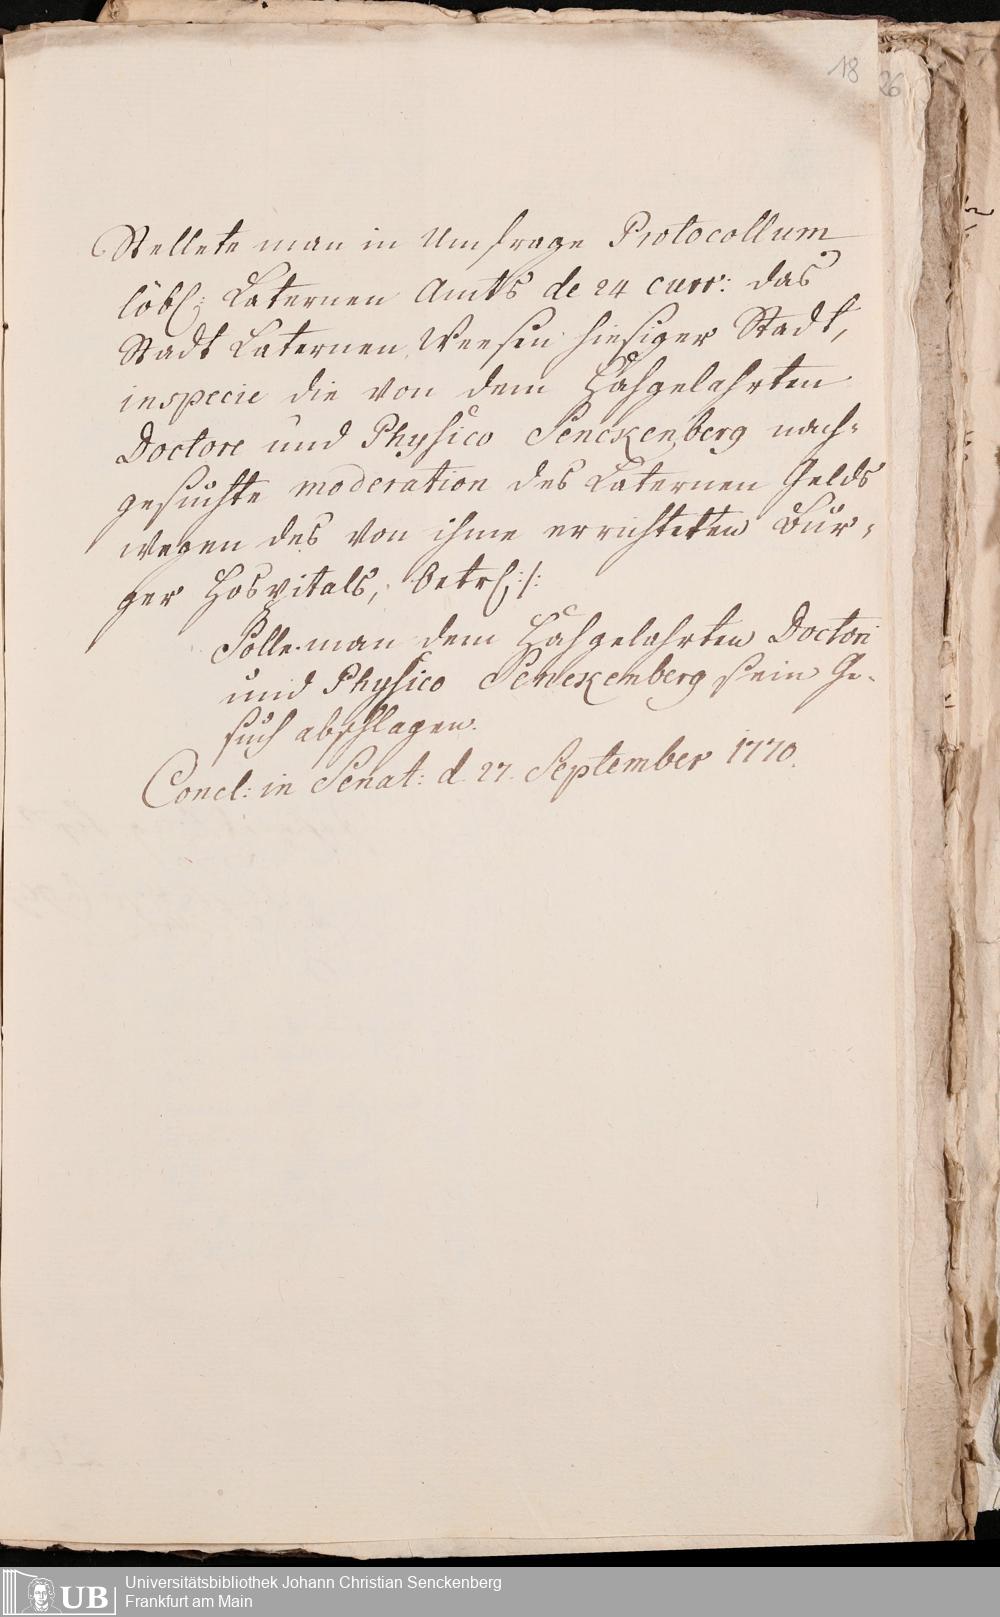 18
26
Stellete man in Umfrage Protocollum
löbl: Laternen Amts de 24 curr: das
Stadt Laternen Weesen hiesiger Stadt,
inspecie die von dem Hochgelahrten
Doctore und Physico Senckenberg nach-
gesuchte moderation des Laternen Gelds
wegen des von ihme errichteten Bur-
ger Hospitals, betrf:/:
Solle man dem Hochgelahrten Doctori
und Physico Senckenberg sein Ge-
such abschlagen.
Concl: in Senat: d. 27. September 1770.
UB
Universitätsbibliothek Johann Christian Senckenberg
Frankfurt am Main